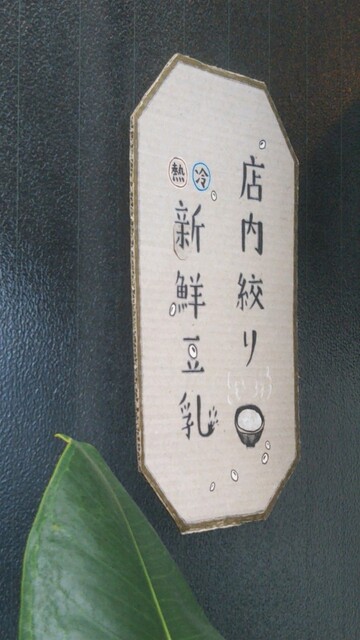 店内絞り
冷 熱
新鮮豆乳